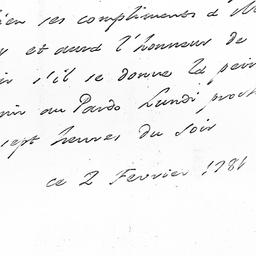 ien ses compliments a
et aura l'honneur de
s'il se donne la pein
nir au Pardo Lundi proch
sept heures du soir
ce 2 Fevrier 1781